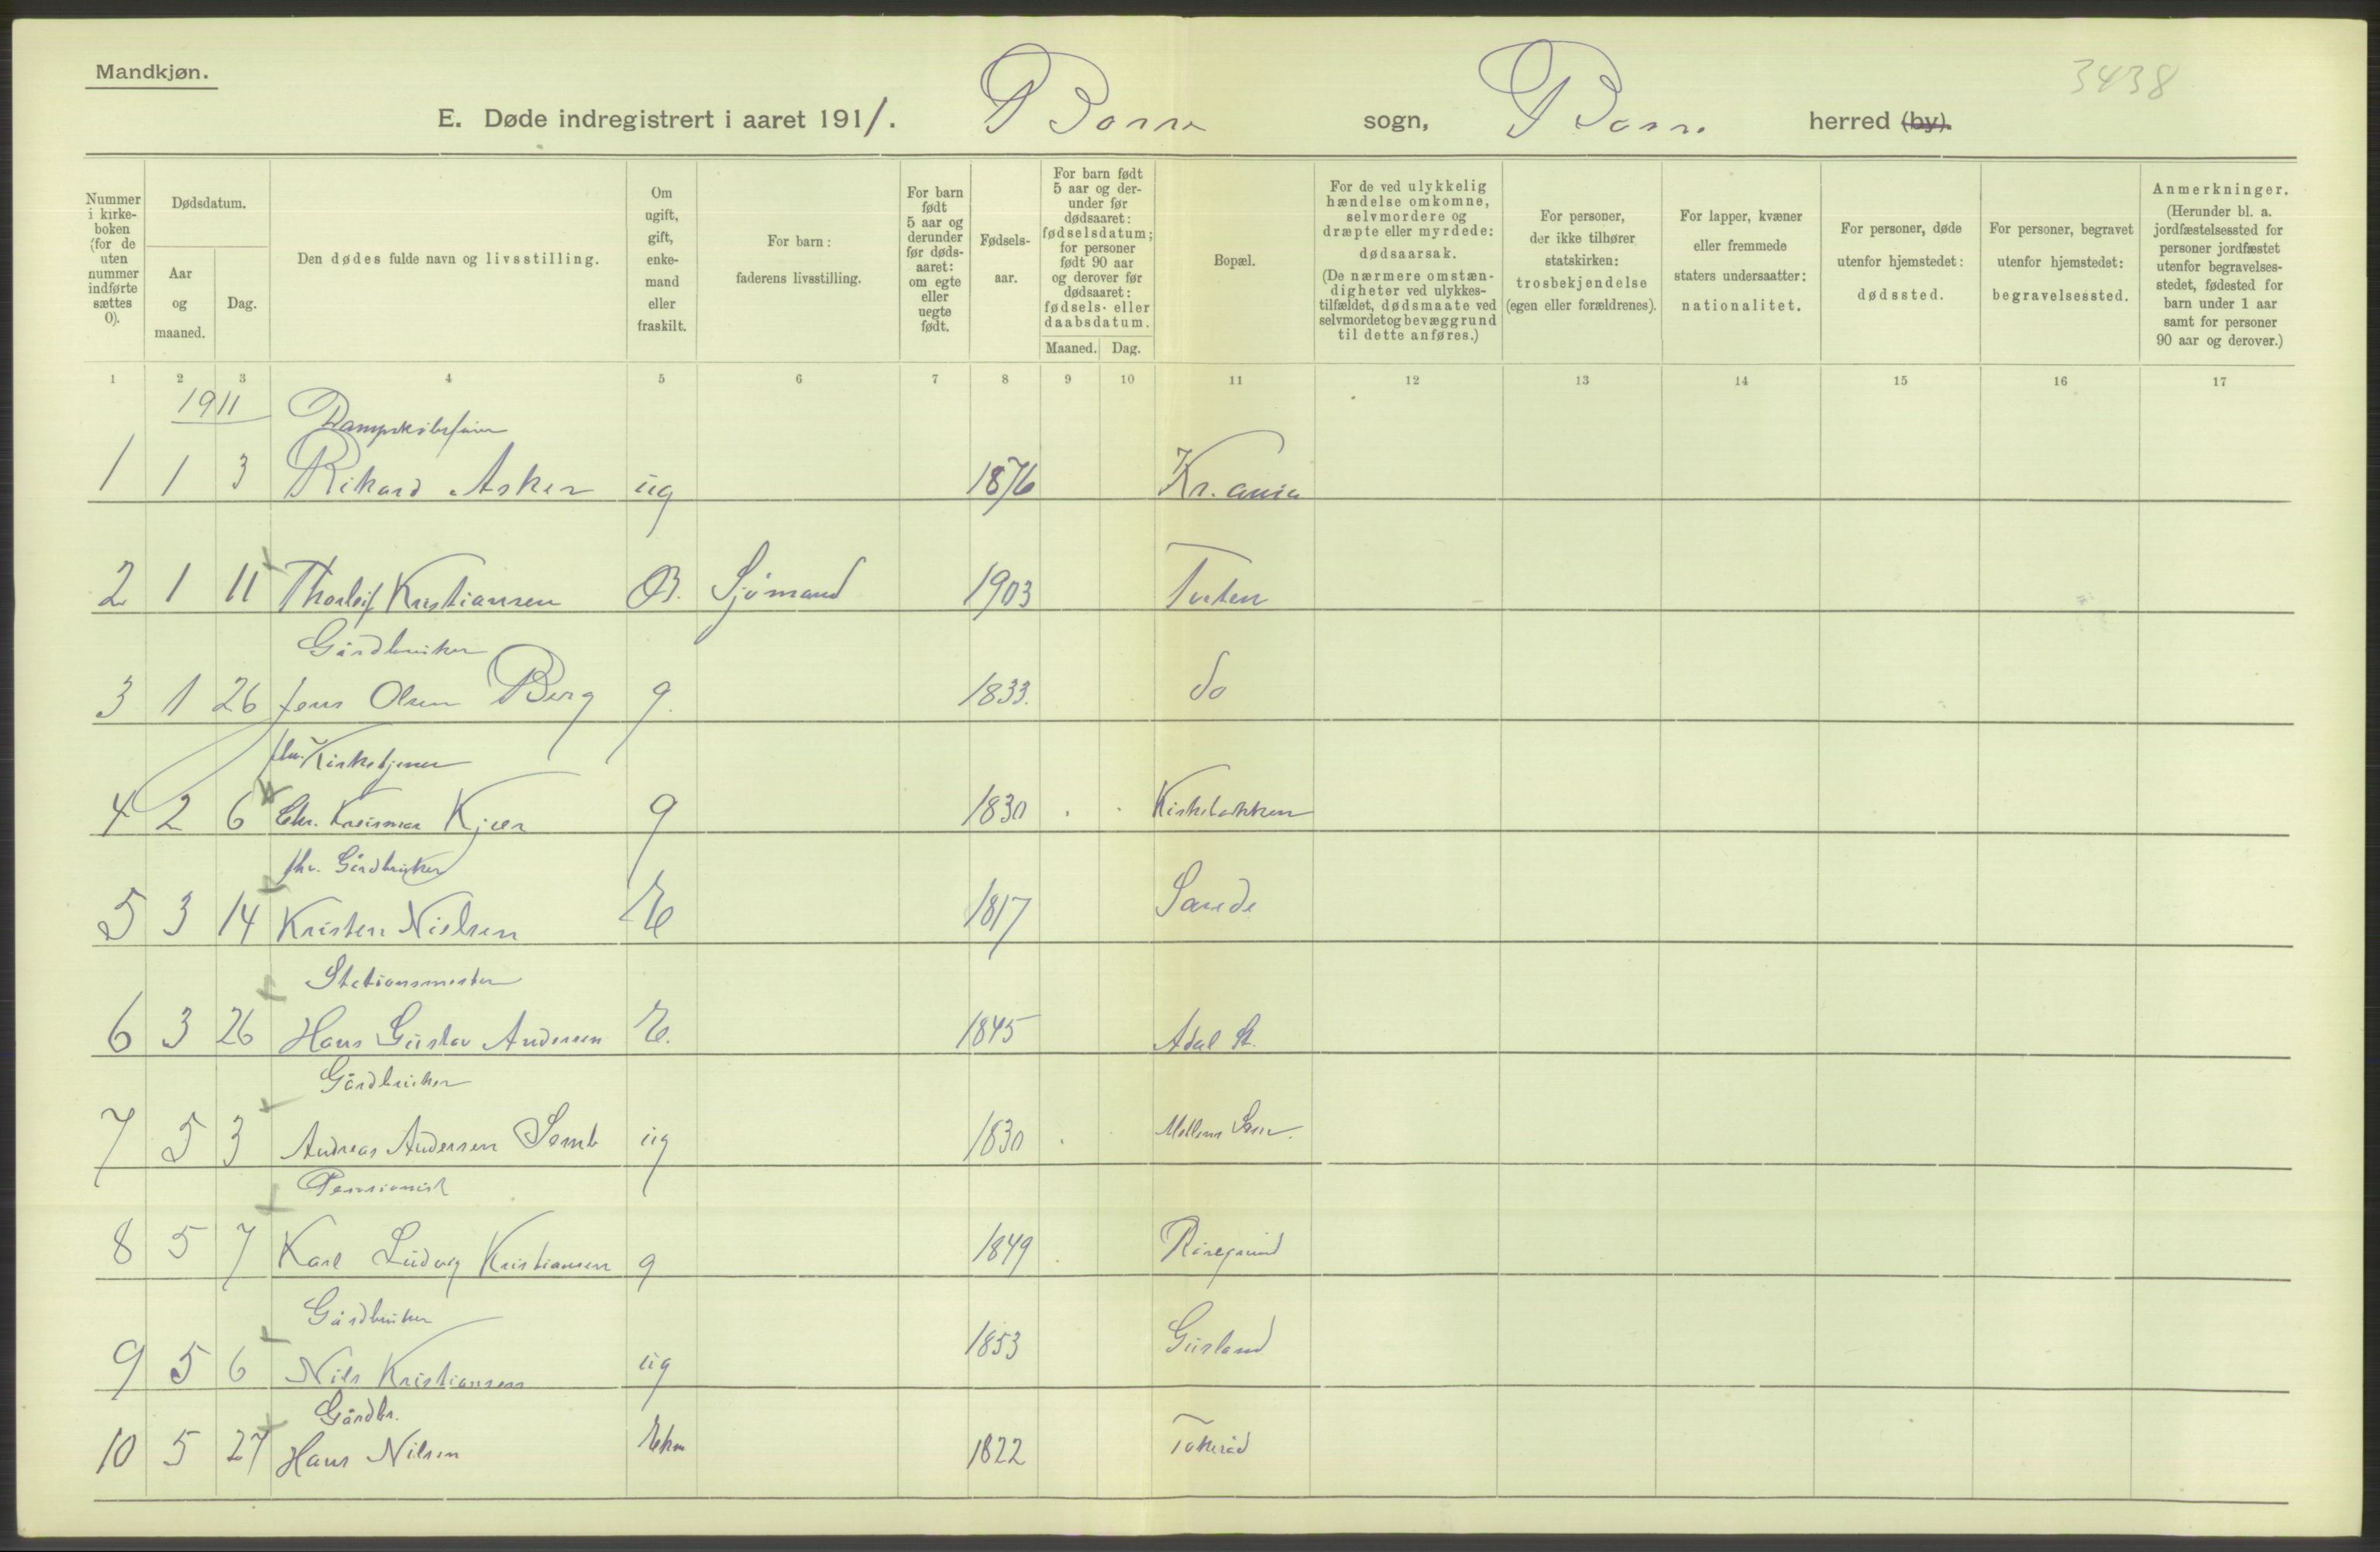 Mandkjøn.
3438
E. Døde indregistrert i aaret 1911. Borre sogn, Borre herred (by).
Nummer i kirke-boken (for de uten nummer indførte sættes 0).
Dødsdatum.
Aar og maaned.
Dag.
Den dødes fulde navn og livsstilling.
Om ugift, gift, enke-mand eller fraskilt.
For barn: faderens livsstilling.
For barn født 5 aar og derunder før døds-aaret: om egte eller uegte født.
Fødsels-aar.
For barn født 5 aar og der-under før dødsaaret: fødselsdatum; for personer født 90 aar og derover før dødsaaret: fødsels- eller daabsdatum.
Maaned. Dag.
Bopæl.
For de ved ulykkelig hændelse omkomne, selvmordere og dræpte eller myrdede: dødsaarsak. (De nærmere omstæn-digheter ved ulykkes-tilfældet, dødsmaate ved selvmordet og bevæggrund til dette anføres.)
For personer, der ikke tilhører statskirken: trosbekjendelse (egen eller forældrenes).
For lapper, kvæner eller fremmede staters undersaatter: nationalitet.
For personer, døde utenfor hjemstedet: dødssted.
For personer, begravet utenfor hjemstedet: begravelsessted.
Anmerkninger. (Herunder bl. a. jordfæstelsessted for personer jordfæstet utenfor begravelses-stedet, fødested for barn under 1 aar samt for personer 90 aar og derover.)
1 2 3 4 5 6 7 8 9 10 11 12 13 14 15 16 17
1911
1 1 3 Rikard Asker ug 1876 Kr.ania
2 1 11 Thorleif Kristiansen B. Sjømand 1903 Torten
Gårdbruker
3 1 26 Jens Olsen Berg g. 1833. do
fhv. Kirketjener
4 2 6 Chr. Kjær g 1830 Kirkebakken
fhv. Gårdbruker
5 3 14 Kristen Nielsen E 1817 Sande
Stationsmester
6 3 26 Hans Gustav Andersen E. 1845 Adal St.
Gårdbruker
7 5 3 Andreas Andersen Semb ug 1830 Mellem
Pensionist
8 5 7 Karl Ludvig Kristiansen g 1849
Gårdbruker
9 5 6 Nils Kristiansen ug 1853
Gårdbr.
10 5 27 Hans Nilsen Ekm 1822 Tokerød